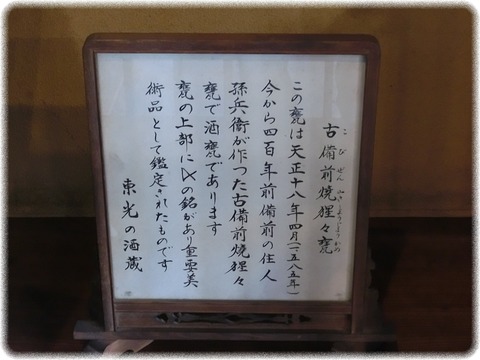 古備前焼猩々甕
こびぜんやきしょうじょうがめ
この甕は天正十八年四月(一五八五年)
今から四百年前備前の住人
孫兵衛が作つた古備前焼猩々
甕で酒甕であります
甕の上部にの銘があり重要美
術品として鑑定されたものです
東光の酒蔵